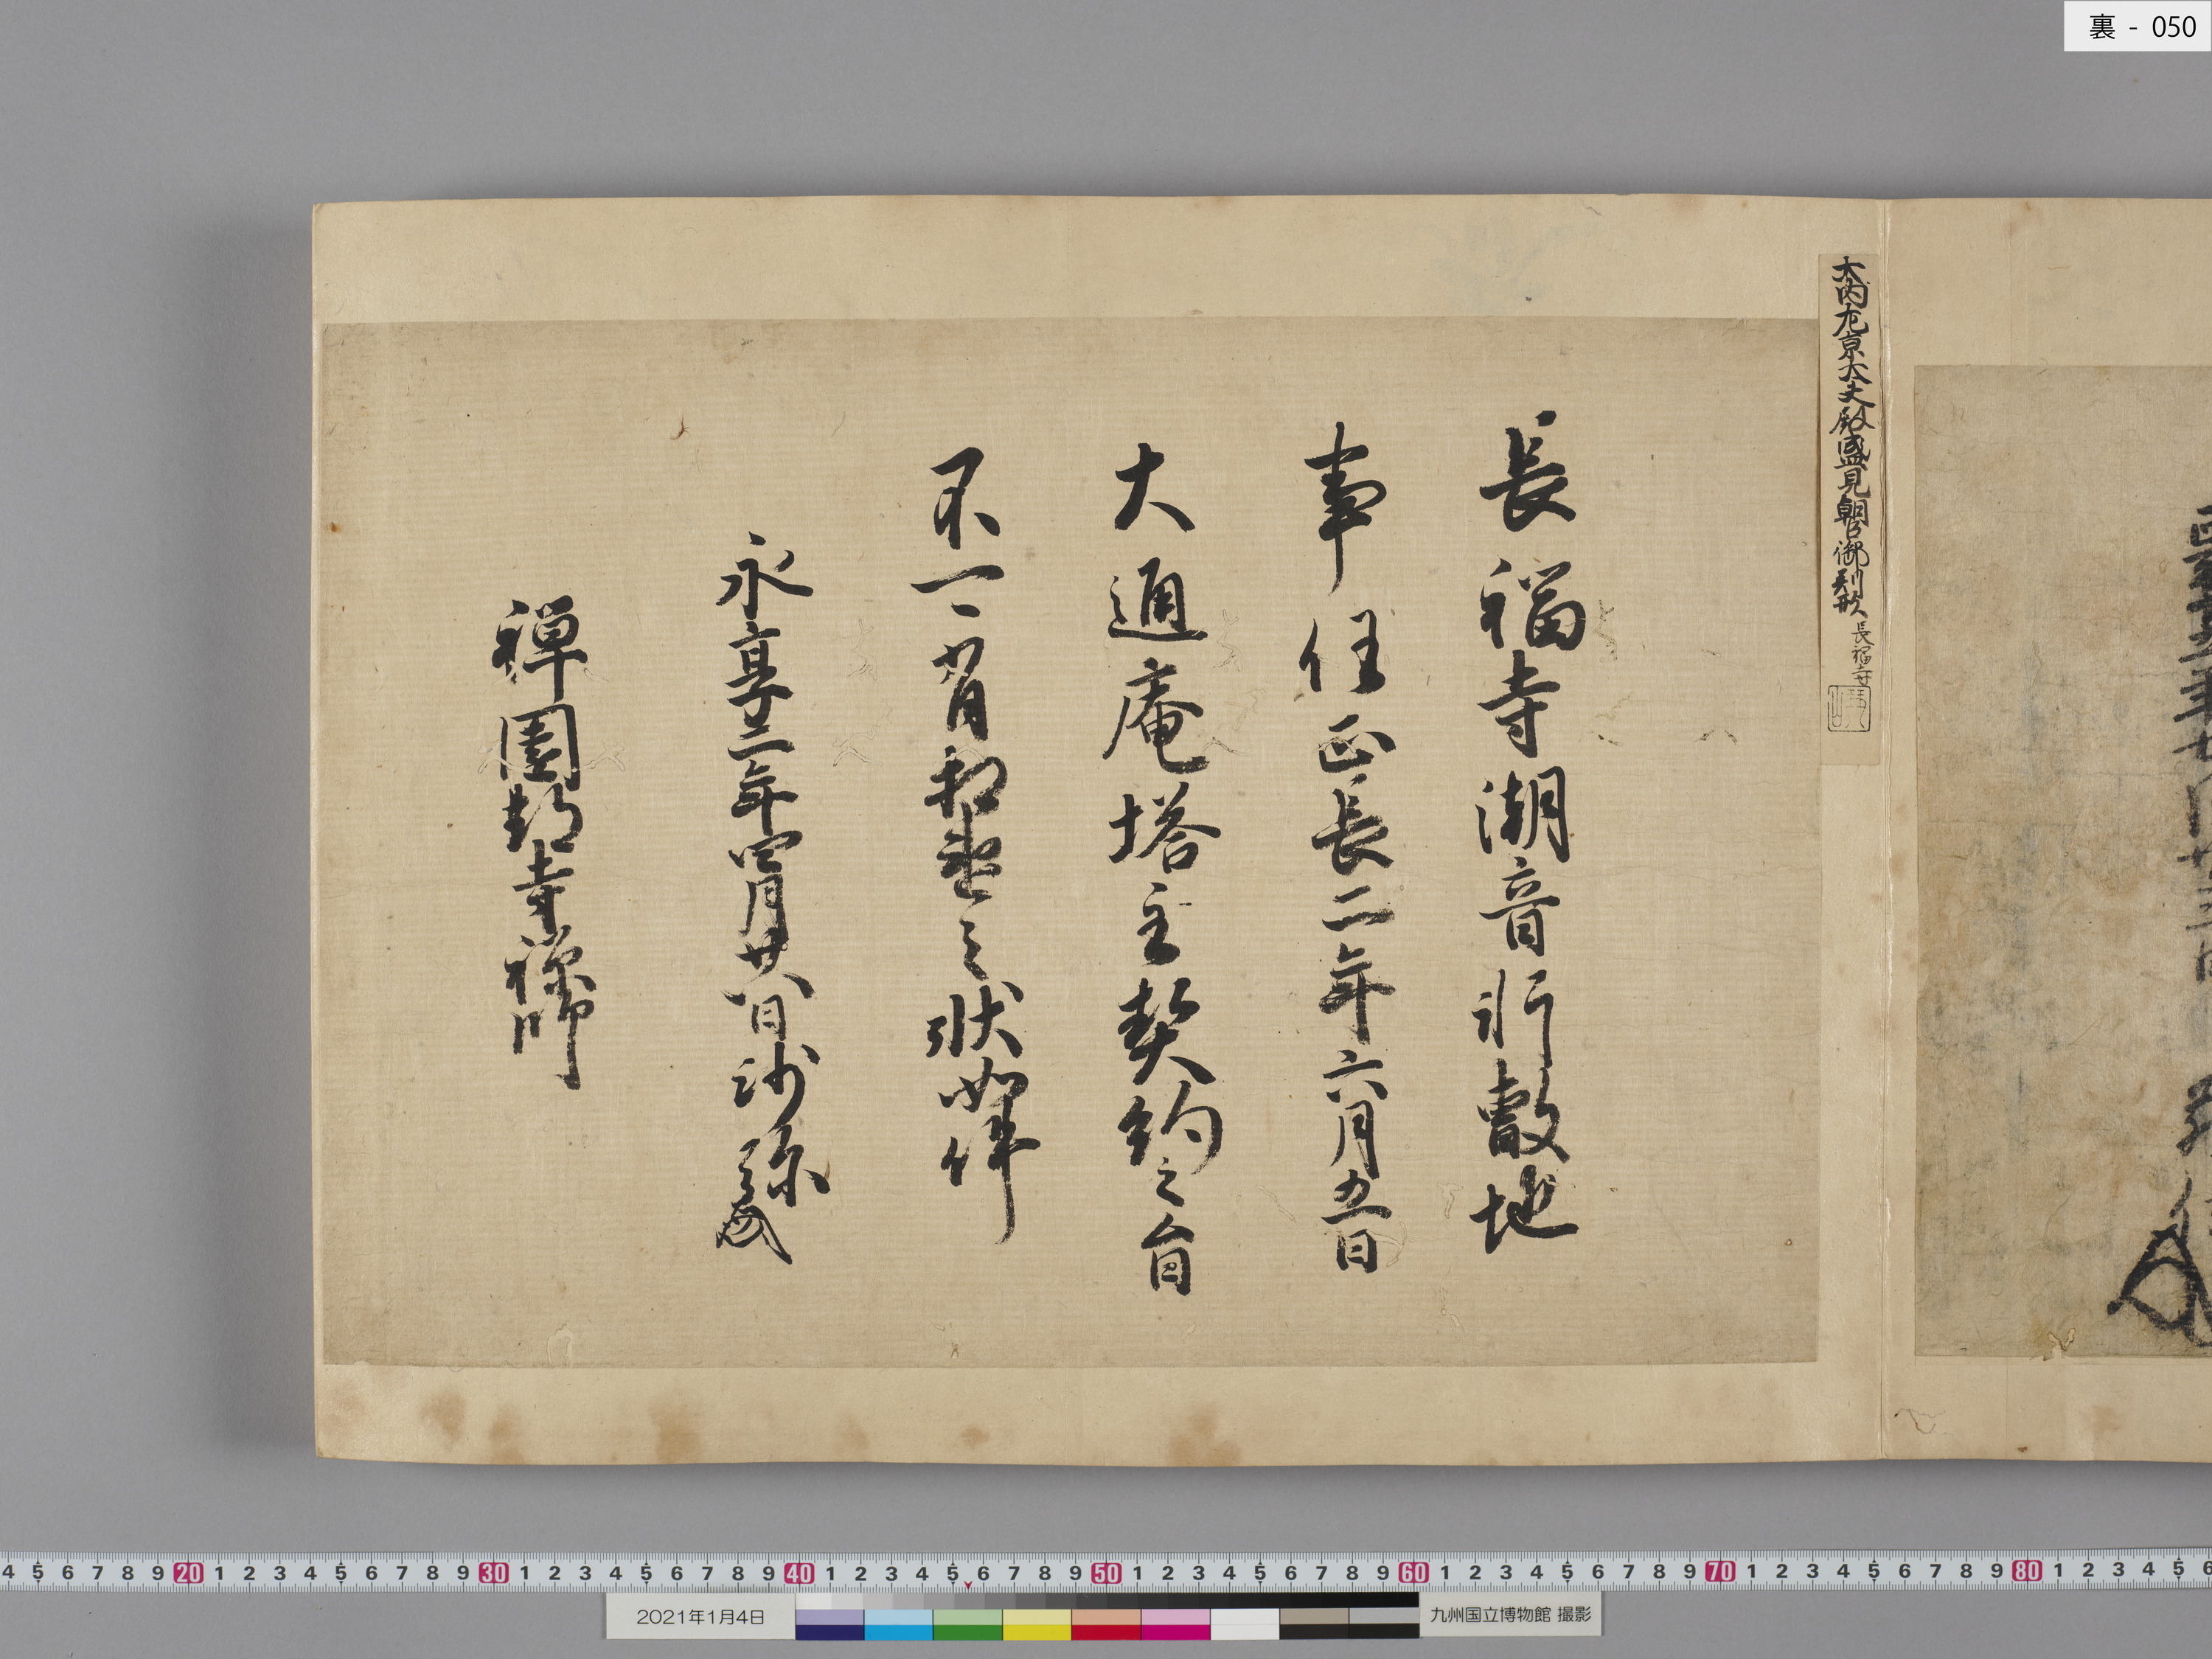 裏 - 050
大内左京大夫殿盛見朝臣御判形 長福寺
長福寺潮音所敷地
事任正長二年六月五日
大通庵塔主契約之旨
不可有相違之状如件
永享三年四月廿八日沙弥
禅園都寺禅師
4 5 6 7 8 9 20 1 2 3 4 5 6 7 8 9 30 1 2 3 4 5 6 7 8 9 40 1 2 3 4 5 6 7 8 9 50 1 2 3 4 5 6 7 8 9 60 1 2 3 4 5 6 7 8 9 70 1 2 3 4 5 6 7 8 9 80 1 2 3 4 5 6
2021年1月4日
九州国立博物館 撮影